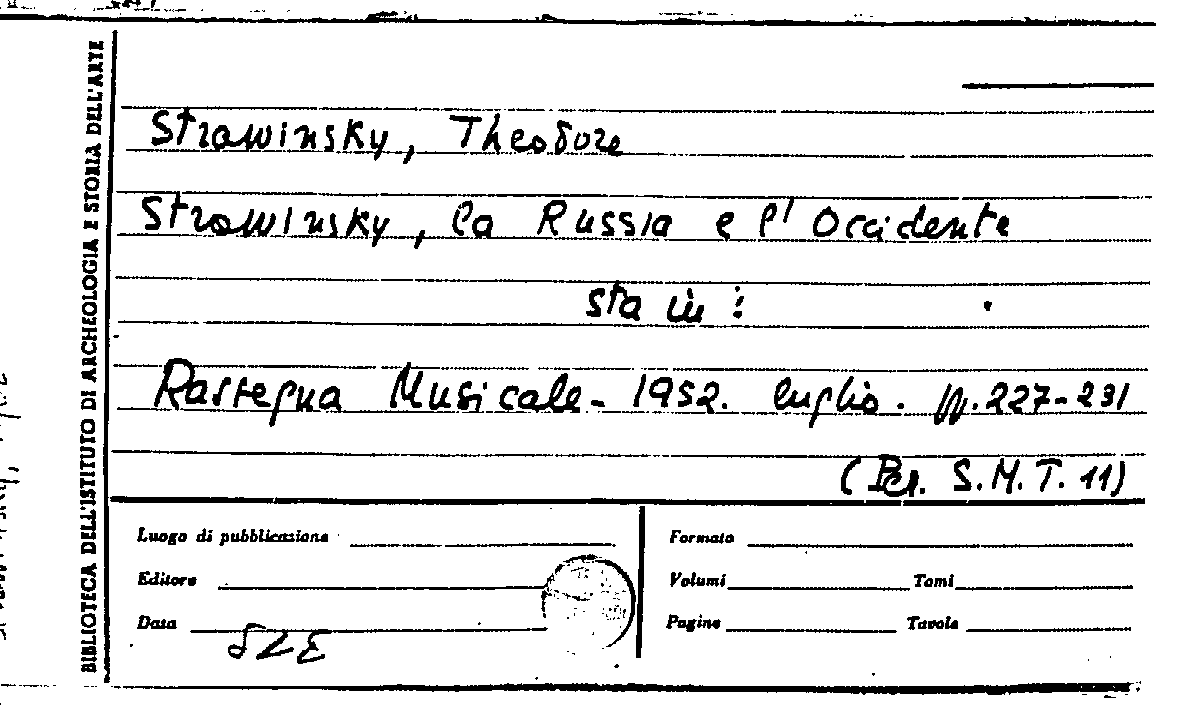 BIBLIOTECA DELL'ISTITUTO DI ARCHEOLOGIA E STORIA DELL'ARTE
Strawinsky, Theodore
Strawinsky, la Russia e l'Occidente
sta in:
Rassegna Musicale - 1952. luglio. pp. 227-231
(Per. S.M.T. 11)
Luogo di pubblicazione
Formato
Editore
Volumi Tomi
Data
Pagine Tavole